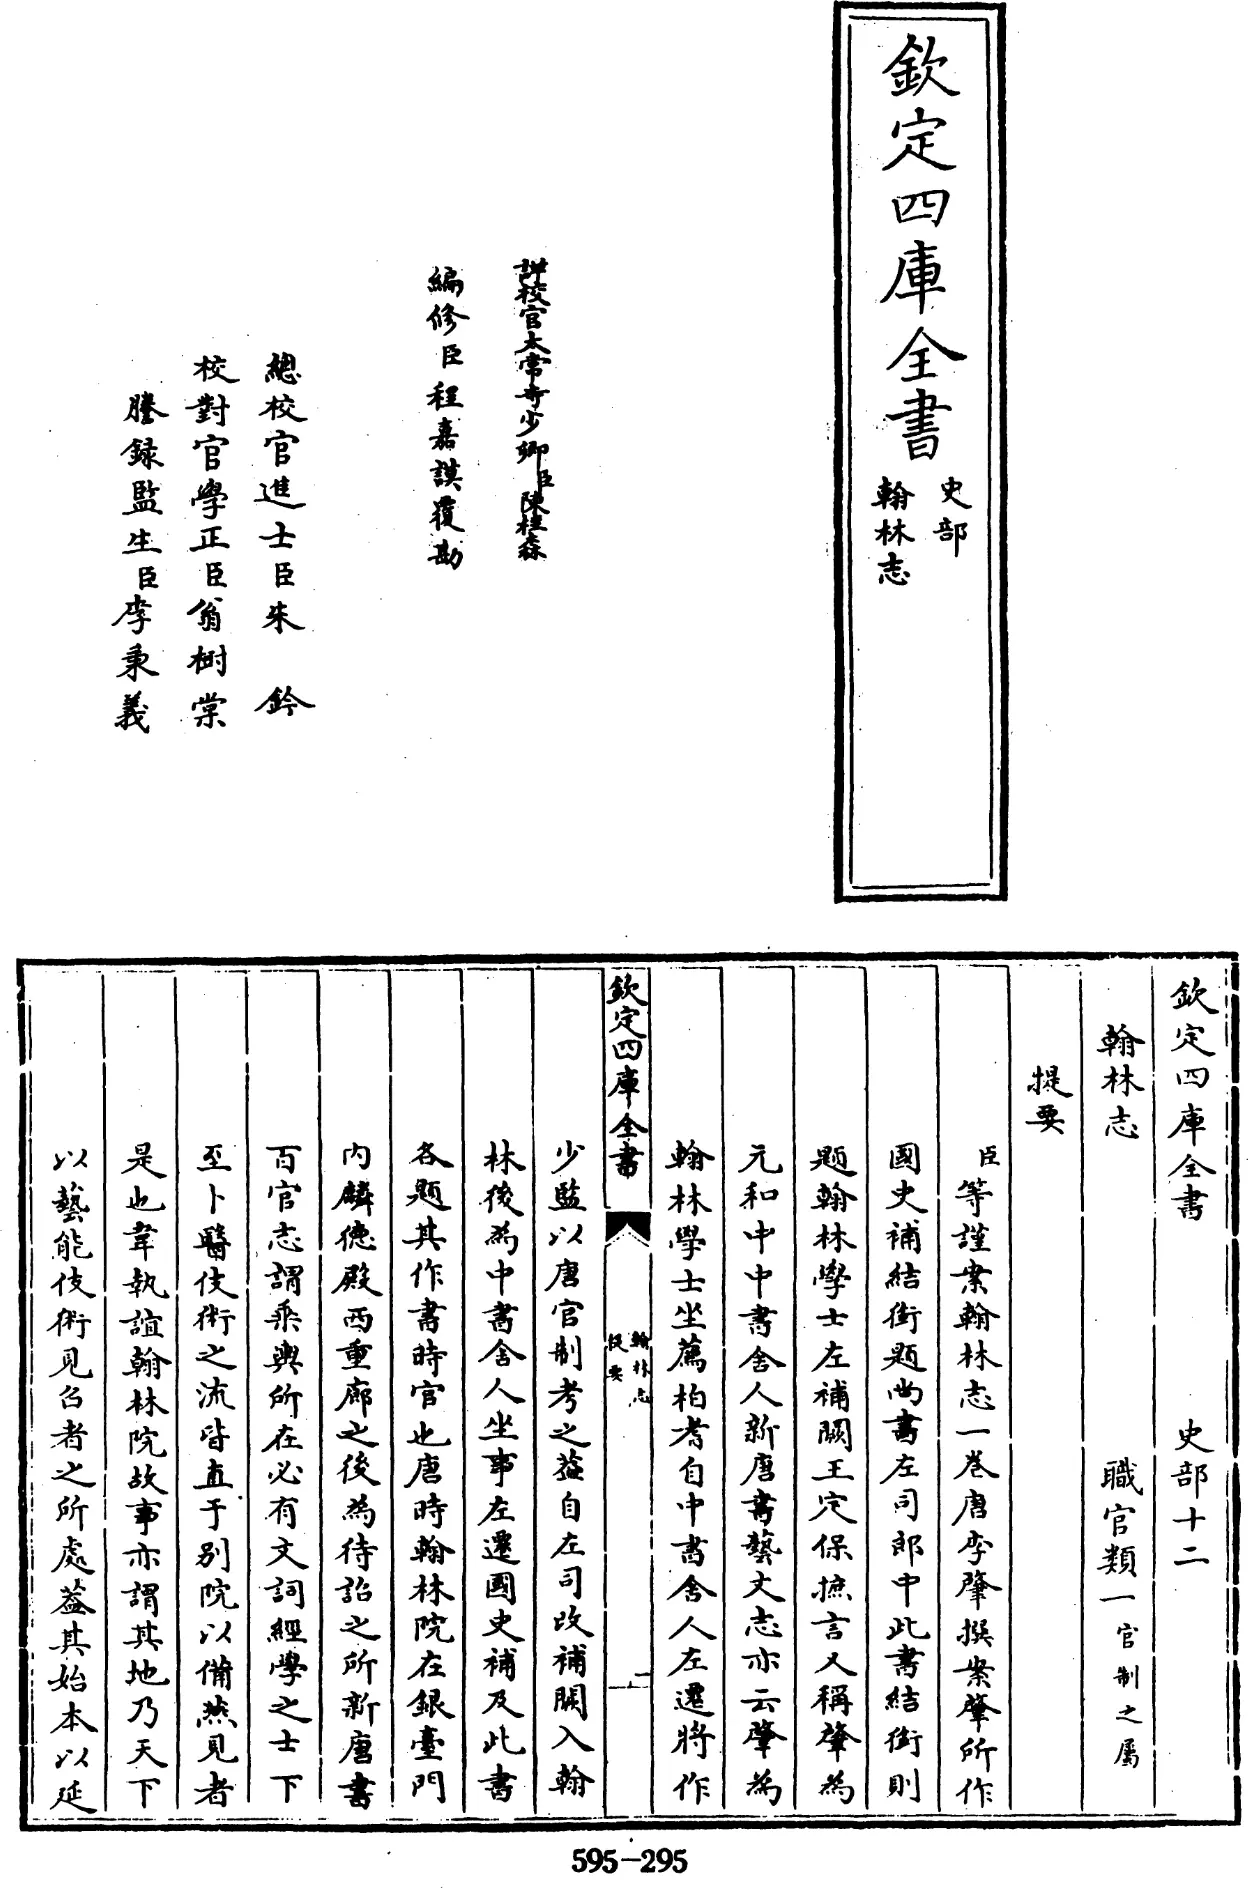 欽定四庫全書
史部
翰林志
詳校官太常寺少卿臣陳桂森
編修臣程嘉謨覆勘
總校官進士臣朱鈐
校對官學正臣翁樹棠
謄錄監生臣李秉義
欽定四庫全書 史部十二
翰林志 職官類一官制之屬
提要
臣等謹案翰林志一卷唐李肇撰案肇所作
國史補結銜題尚書左司郎中此書結銜則
題翰林學士左補闕王定保摭言又稱肇為
元和中中書舍人新唐書藝文志亦云肇為
翰林學士坐薦柏耆自中書舍人左遷將作
欽定四庫全書
翰林志
提要
二
少監以唐官制考之葢自左司改補闕入翰
林後為中書舍人坐事左遷國史補及此書
各題其作書時官也唐時翰林院在銀臺門
內麟德殿西重廊之後為待詔之所新唐書
百官志謂乘輿所在必有文詞經學之士下
至卜醫伎術之流皆直于別院以備燕見者
是也韋執誼翰林院故事亦謂其地乃天下
以藝能伎術見召者之所處葢其始本以延
595-295